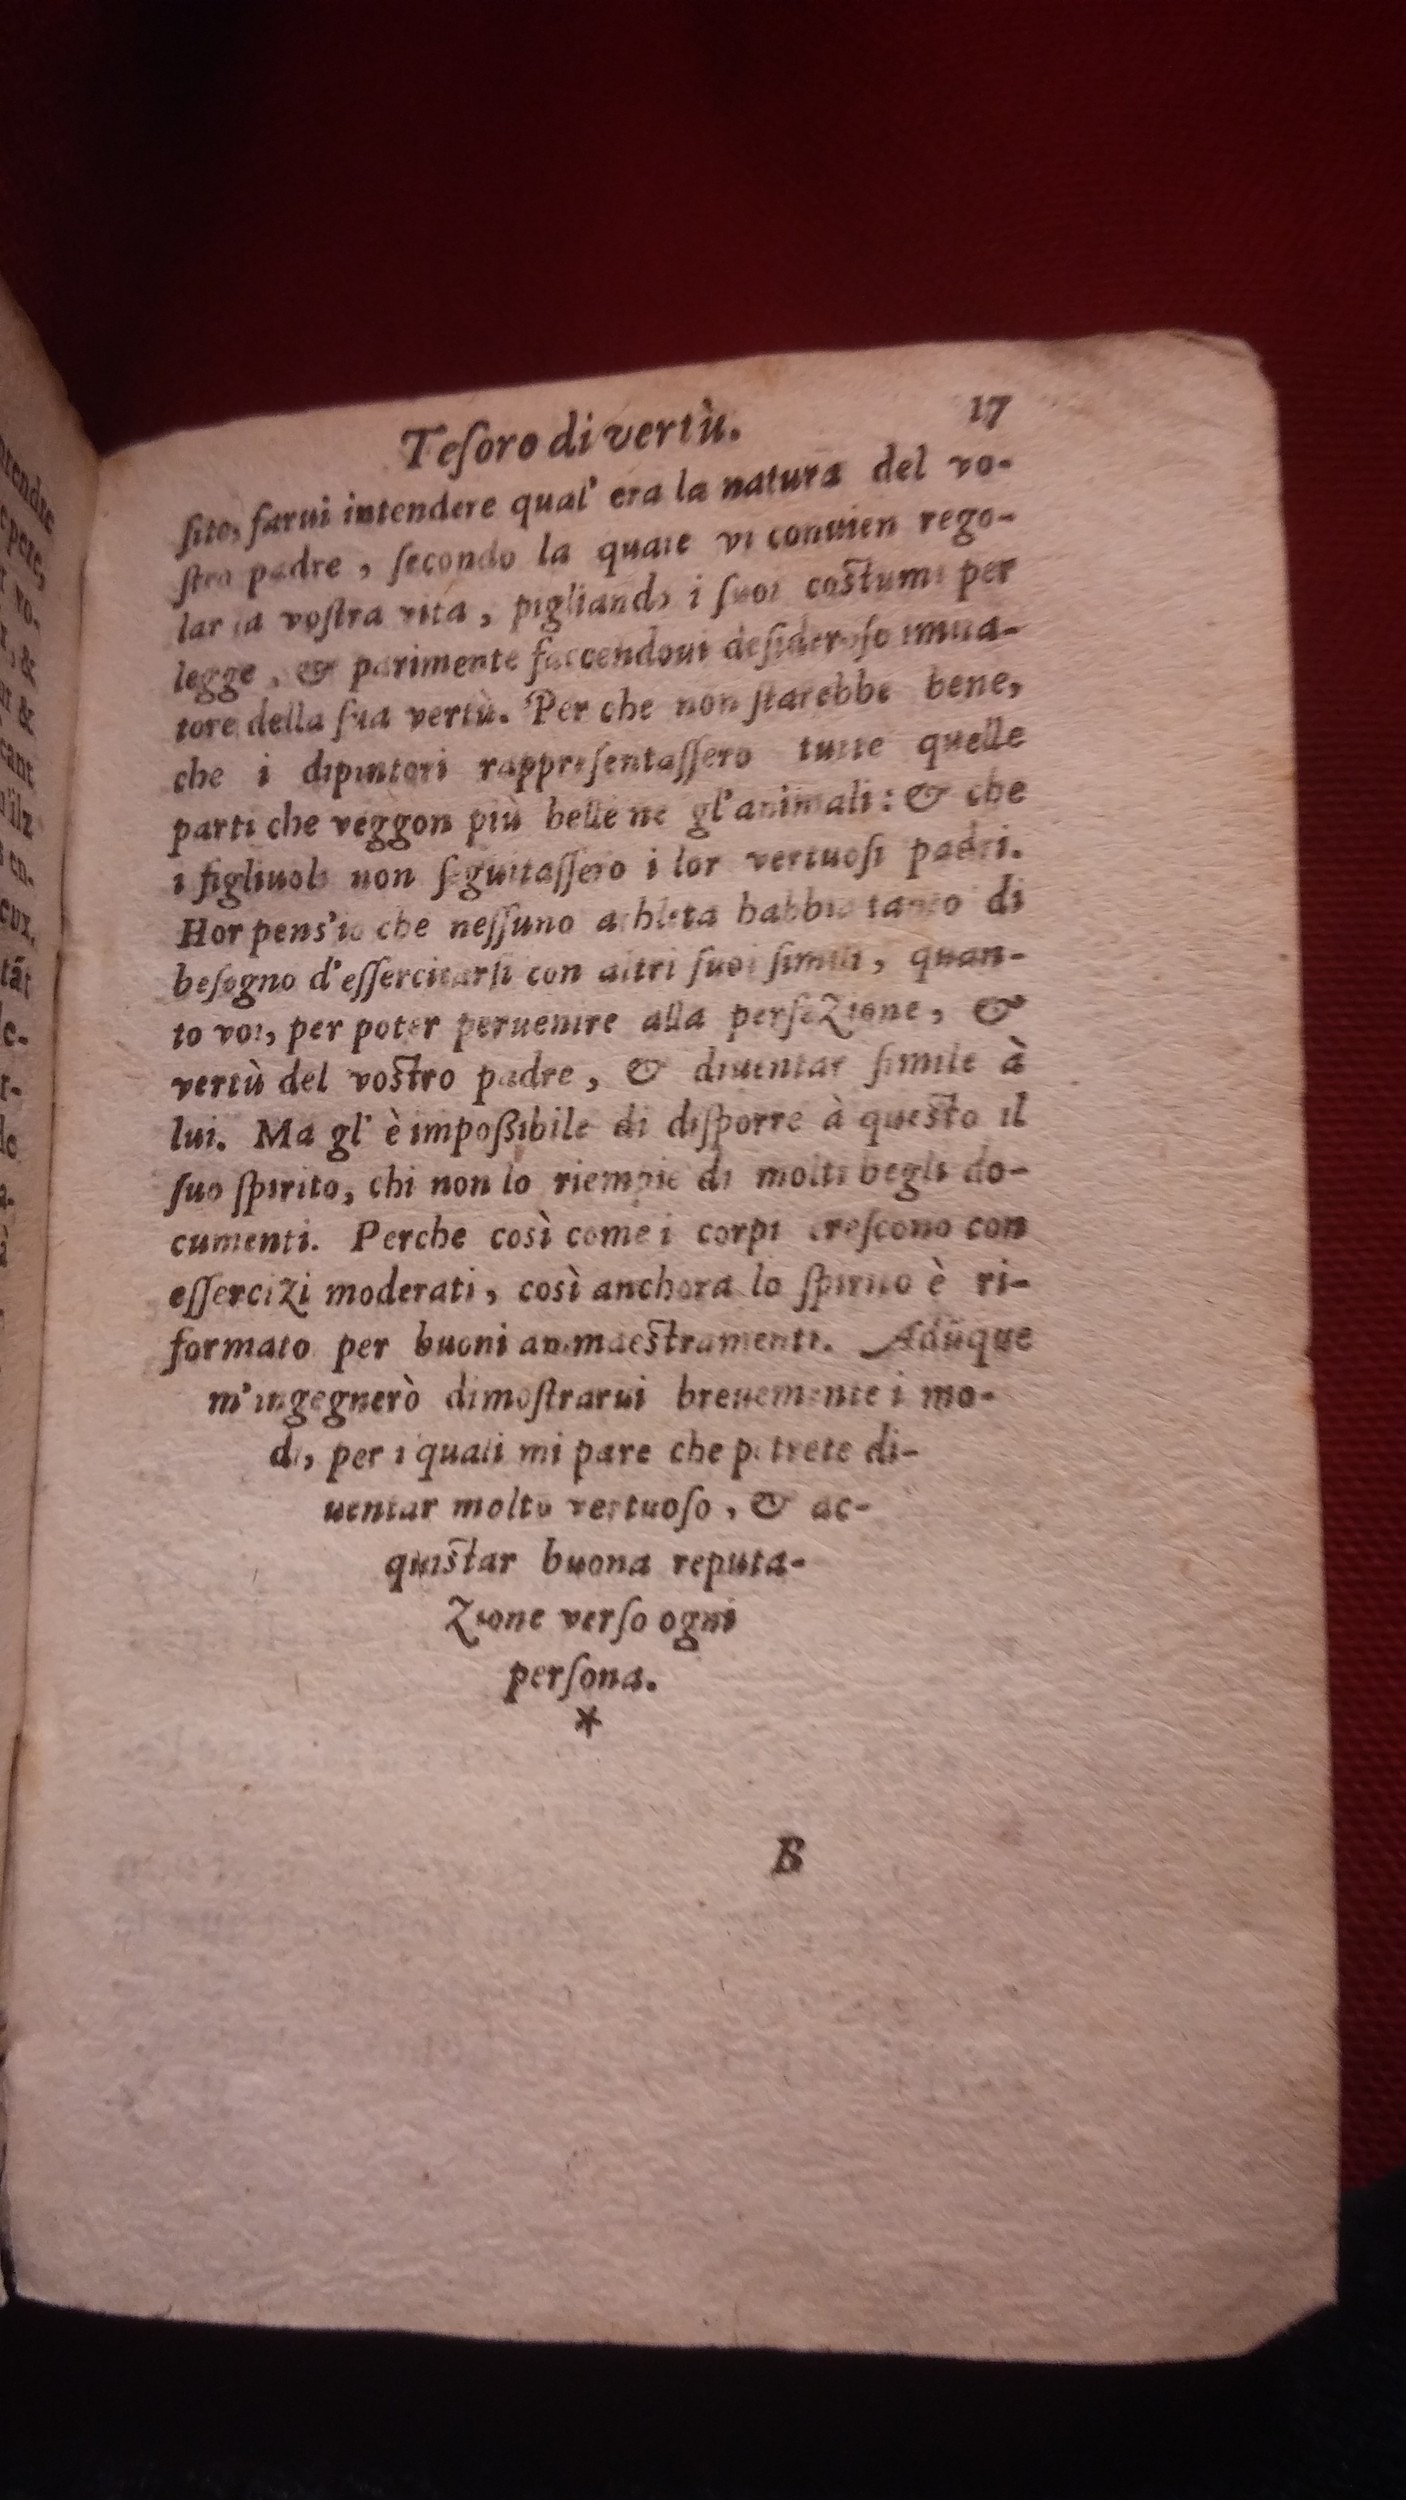 Teſoro di vertù. 17
ſito, farui intendere qual' era la natura del vo-
ſtro padre, ſecondo la quale vi conuien rego-
lar la voſtra vita, pigliando i ſuoi coſtumi per
legge, & parimente faccendoui deſideroſo imita-
tore della ſua vertù. Per che non ſtarebbe bene,
che i dipintori rappreſentaſſero tutte quelle
parti che veggon più belle ne gl'animali: & che
i figliuoli non ſeguitaſſero i lor vertuoſi padri.
Hor pens'io che neſſuno athleta habbia tanto di
beſogno d'eſſercitarſi con altri ſuoi ſimili, quan-
to voi, per poter peruenire alla perfezione, &
vertù del voſtro padre, & diuentar ſimile à
lui. Ma gl' è impoßibile di diſporre à queſto il
ſuo ſpirito, chi non lo riempie di molti begli do-
cumenti. Perche così come i corpi creſcono con
eſſercizi moderati, così anchora lo ſpirito è ri-
formato per buoni ammaeſtramenti. Adũque
m'ingegnerò dimoſtrarui breuemente i mo-
di, per i quali mi pare che potrete di-
uentar molto vertuoſo, & ac-
quiſtar buona reputa-
zione verſo ogni
perſona.
*
B
prendre
vo-
&
&
cant
u'ilz
en-
eux.
tãt